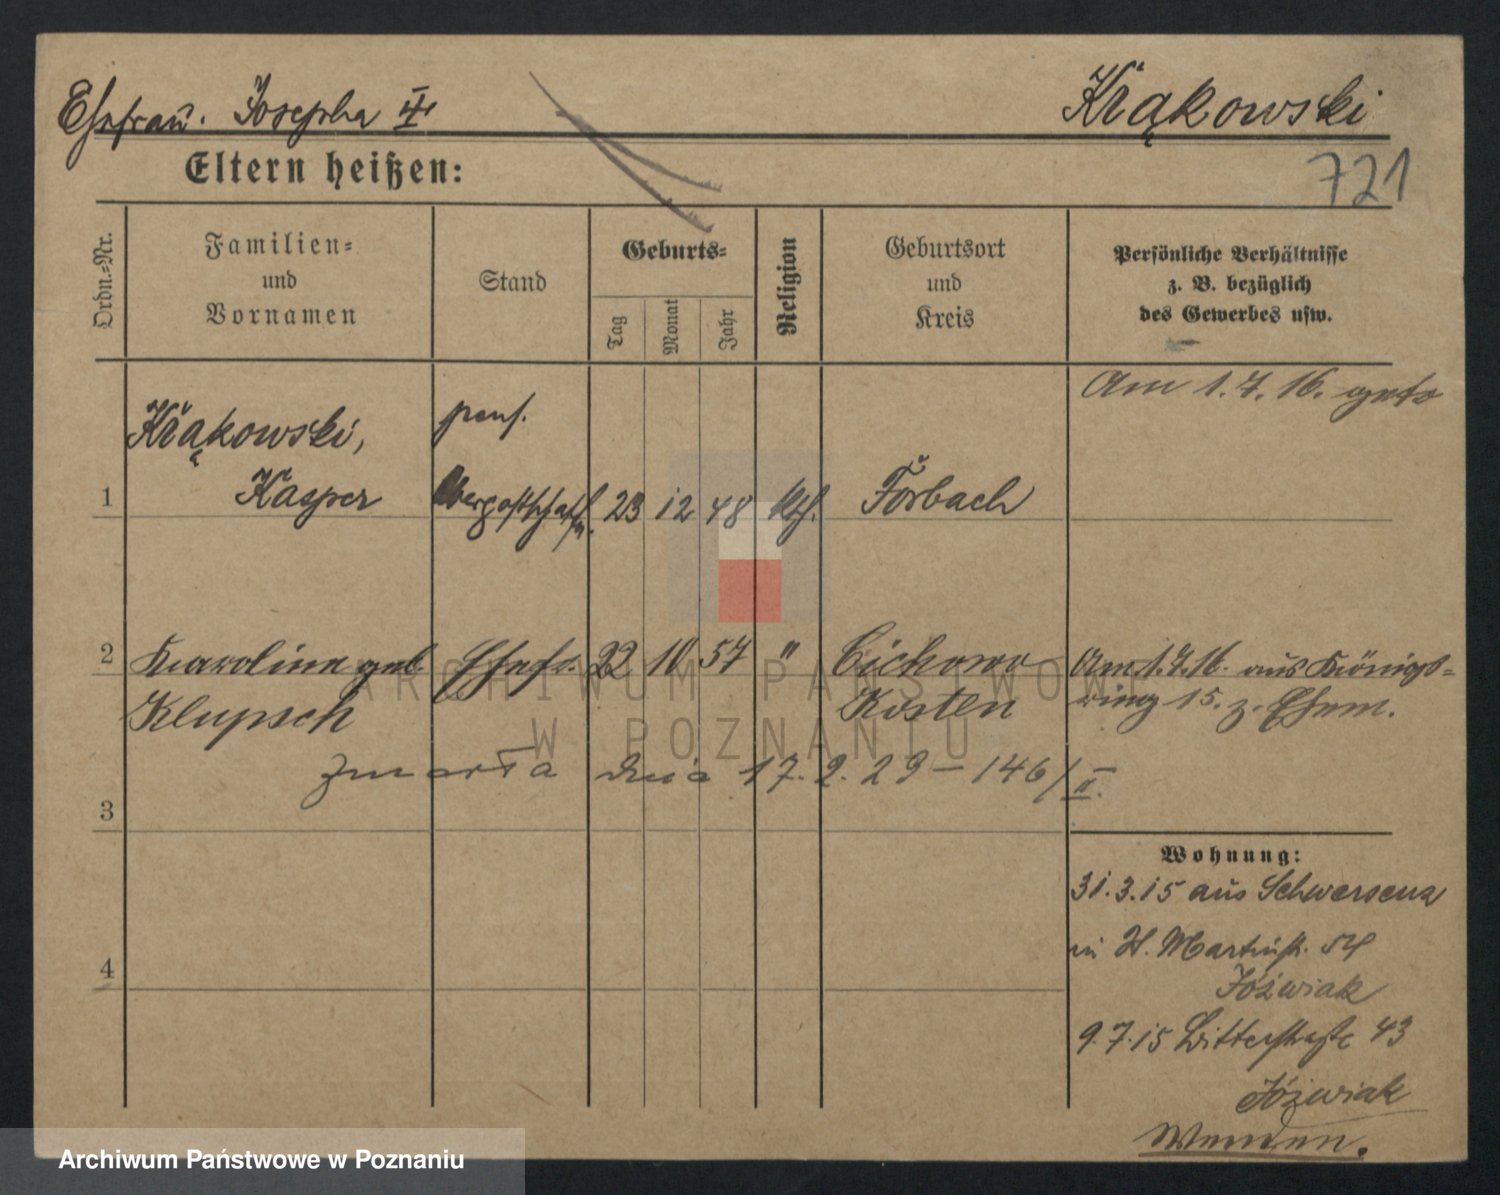 Ehefrau. Josepha III
Krąkowski
721
Eltern heißen:
Ordn.-Nr.
Familien-
und
Vornamen
Stand
Geburts-
Tag
Monat
Jahr
Religion
Geburtsort
und
Kreis
Persönliche Verhältnisse
z. B. bezüglich
des Gewerbes usw.
Am 1.7.16.
1
Krąkowski,
Kasper
pens.
23 12 48 kth. Forbach
2 Karoline geb. Ehefr. 22 10 57 " Cichowo
Klupsch
Kosten
Am 1.7.16. aus Königs-
ring 15. z. Ehem.
zmarła dnia 17.2.29 – 146/II.
3
4
Wohnung:
31.3.15 aus Schwersenz
in St. Martinstr. 54
Jóźwiak
9.7.15 Ritterstraße 43
Jóźwiak
Wenden.
ARCHIWUM PAŃSTWOWE
W POZNANIU
Archiwum Państwowe w Poznaniu